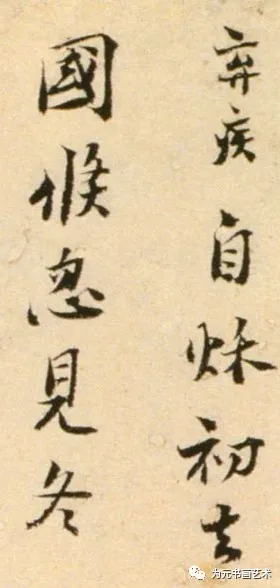 棄疾自秌初去
國倐忽見冬
为元书画艺术